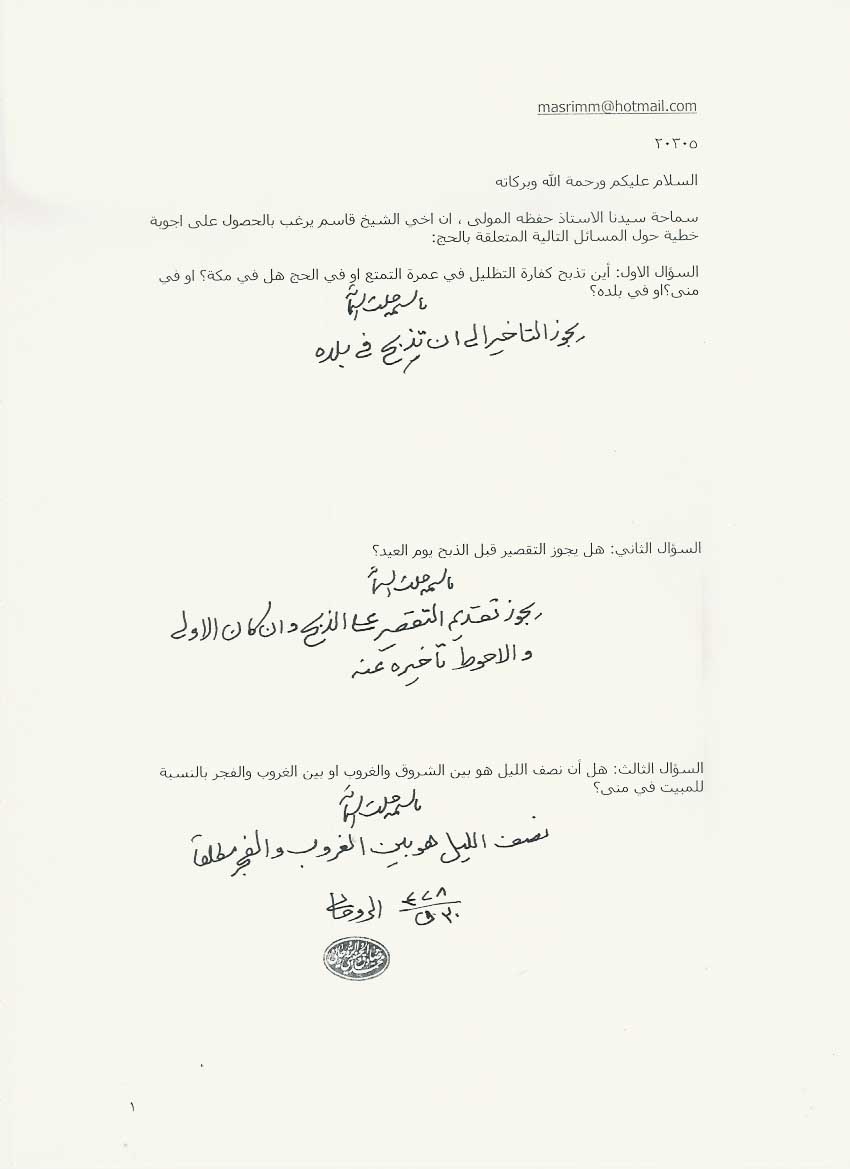 masrimm@hotmail.com
٢٠٣٠٥
السلام عليكم ورحمة الله وبركاته
سماحة سيدنا الاستاذ حفظه المولى ، ان اخي الشيخ قاسم يرغب بالحصول على اجوبة
خطية حول المسائل التالية المتعلقة بالحج:
السؤال الاول: أين تذبح كفارة التظليل في عمرة التمتع او في الحج هل في مكة؟ او في
منى؟او في بلده؟
باسمه جلت اسمائه
يجوز التاخير الى ان يذبح في بلده
السؤال الثاني: هل يجوز التقصير قبل الذبح يوم العيد؟
باسمه جلت اسمائه
يجوز تقديم التقصير على الذبح وان كان الاولى
والاحوط تأخيره عنه
السؤال الثالث: هل أن نصف الليل هو بين الشروق والغروب او بين الغروب والفجر بالنسبة
للمبيت في منى؟
باسمه جلت اسمائه
نصف الليل هو بين الغروب والفجر مطلقا
الروحاني
١